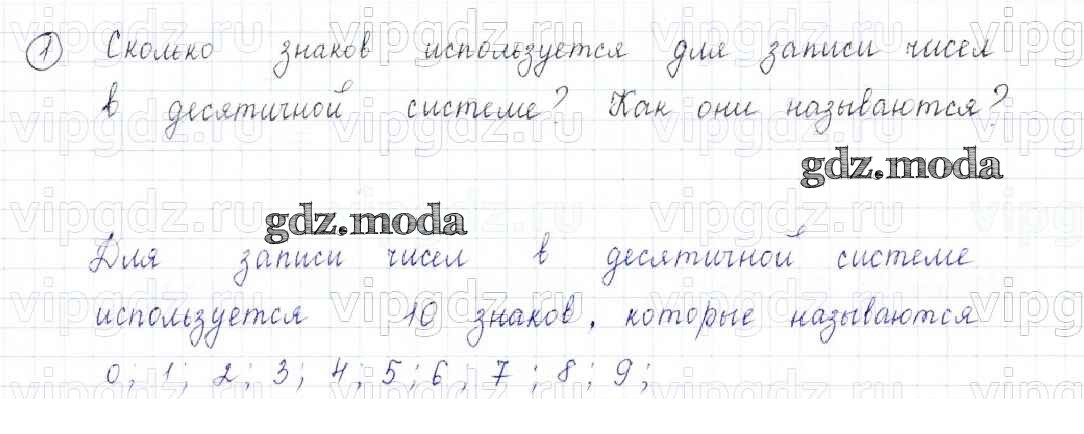 1 Сколько знаков используется для записи чисел
в десятичной системе? Как они называются?
gdz.moda
gdz.moda
Для записи чисел в десятичной системе
используется 10 знаков, которые называются
0; 1; 2; 3; 4; 5; 6, 7; 8; 9;